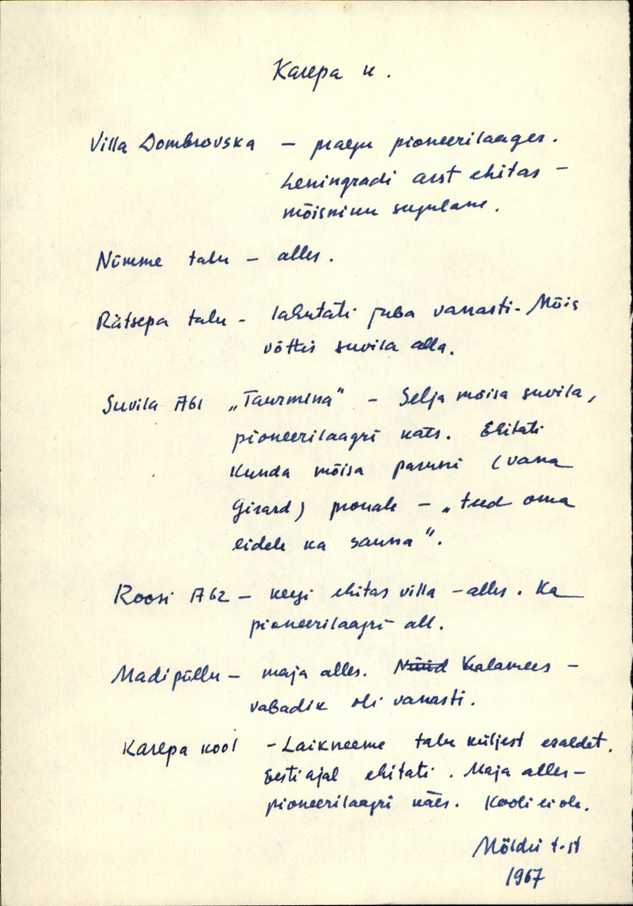 Karepa k.
Villa Dombrovska — praegu pioneerilaager.
Leningradi arst ehitas —
mõisniku sugulane.
Nõmme talu — alles.
Rätsepa talu - lahutati juba vanasti. Mõis
võttis suvila alla.
Suvila A61 „Taurmina" - Selja mõisa suvila,
pioneerilaagri käes. Ehitati
Kunda mõisa paruni (vana
Girard) prouale — „teed oma
eidele ka sauna".
Roosi A62 — keegi ehitas villa - alles. Ka
pioneerilaagri all.
Madipõllu — maja alles. Nüüd Kalamees —
vabadik oli vanasti.
Karepa kool - Laikneeme talu küljest eraldet.
Eesti ajal ehitati. Maja alles-
pioneerilaagri käes. Kooli ei ole.
Möldri t-st
1967